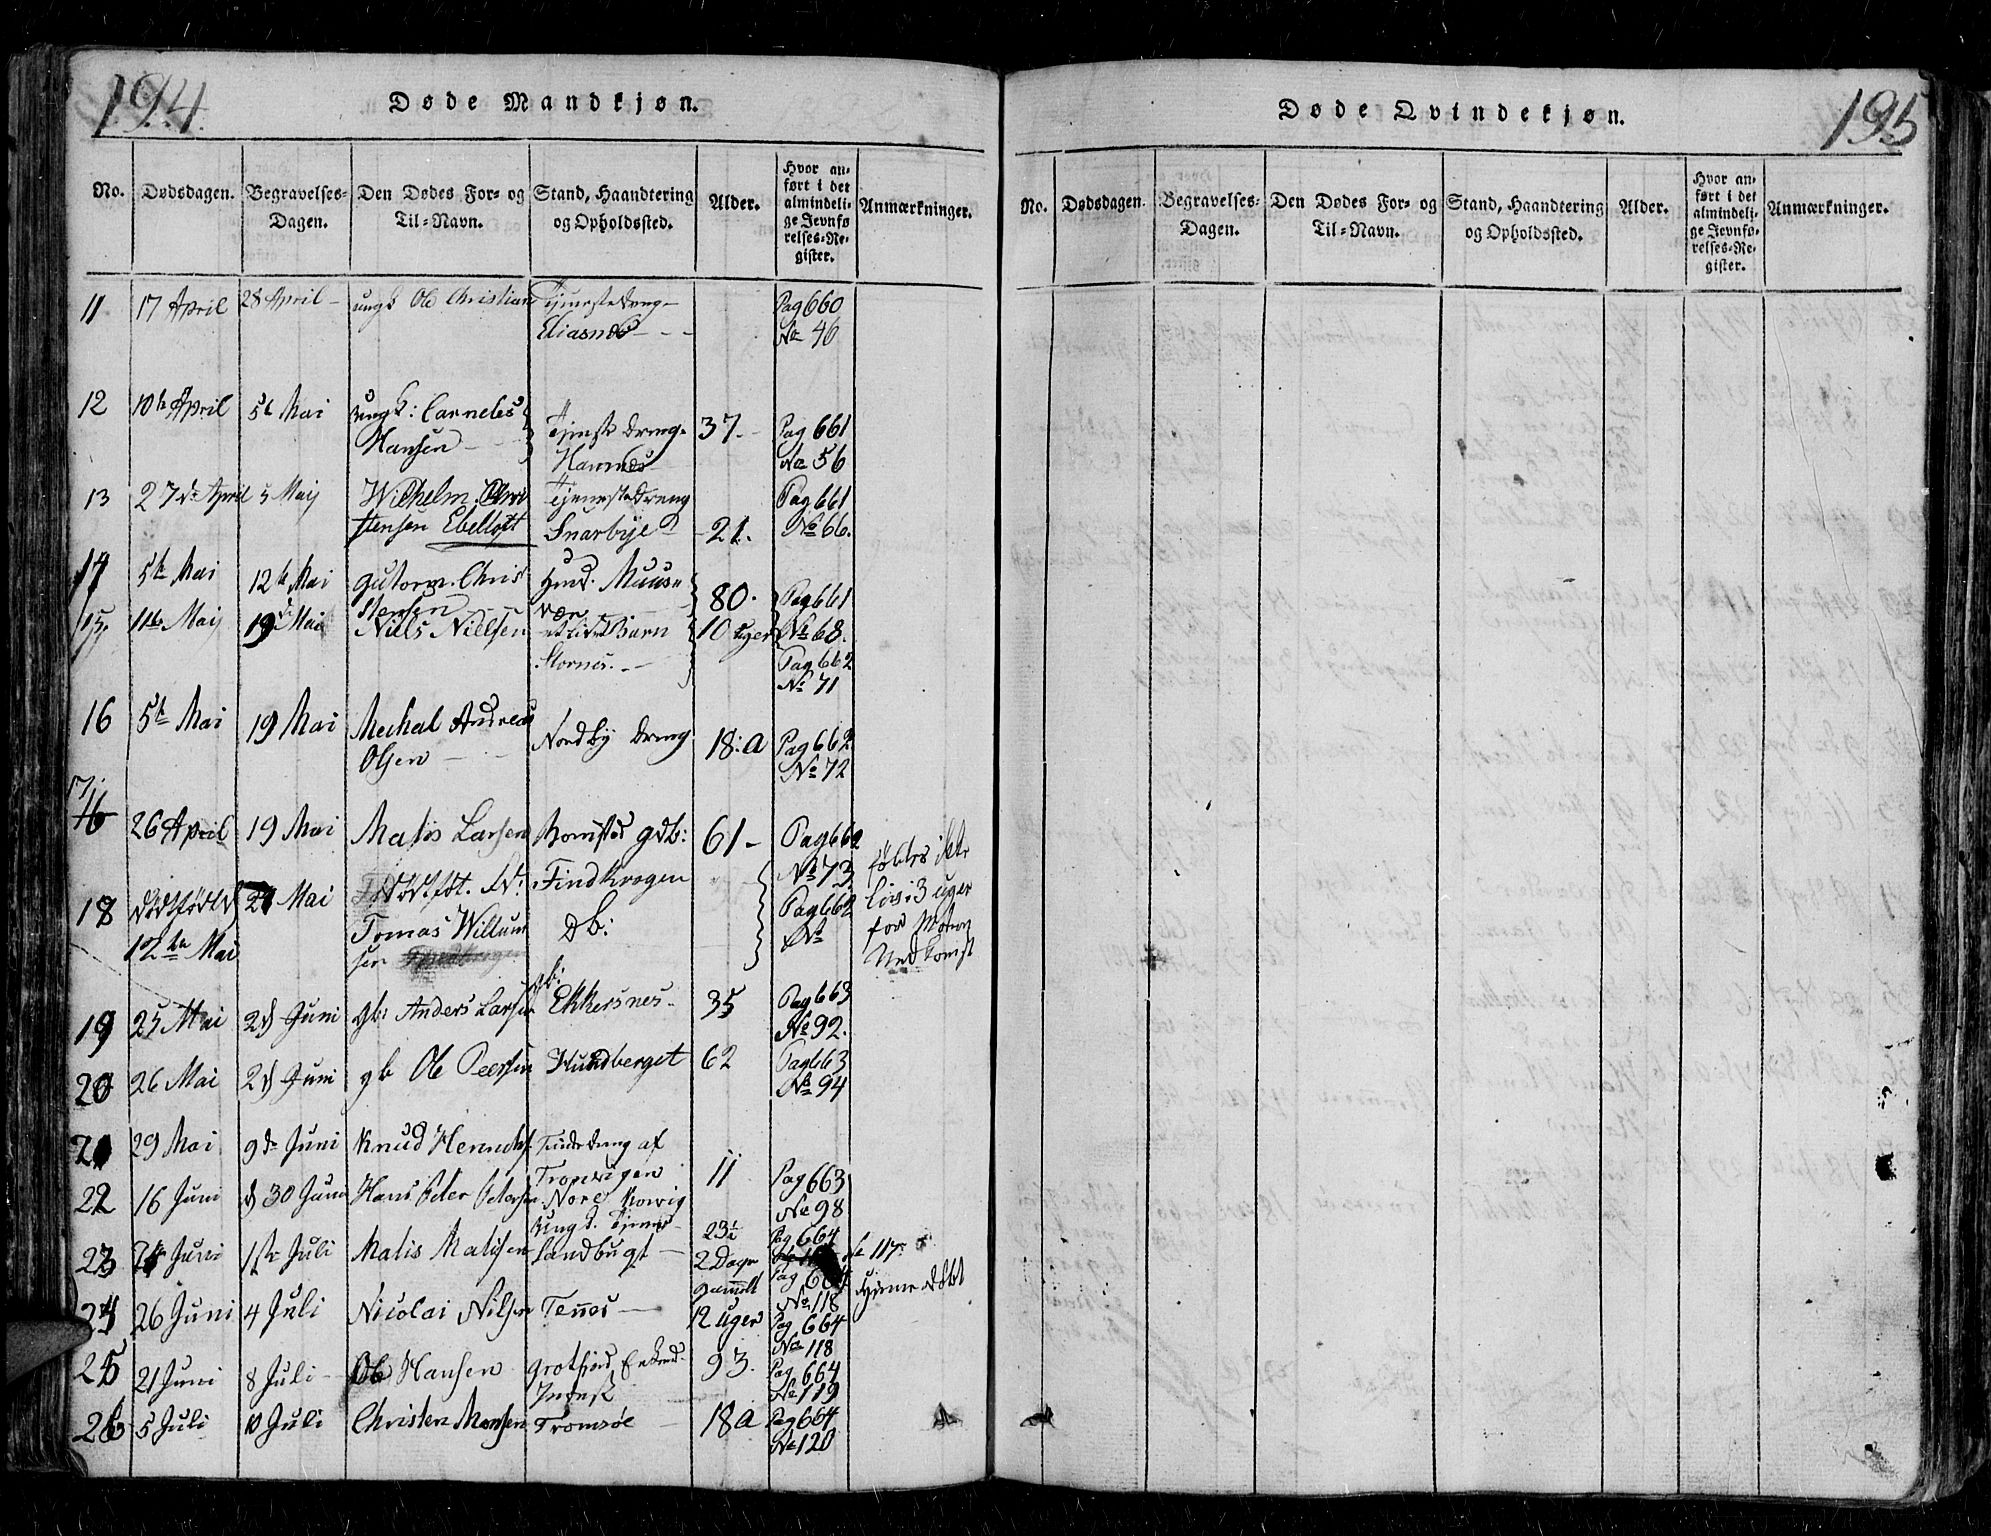 194
Døde Mandkjøn.
No. Dødsdagen. Begravelses-Dagen. Den Dødes For- og Til-Navn. Stand, Haandtering og Opholdssted. Alder. Hvor anført i det almindelige Jevnførelses-Register. Anmærkninger.
11 17 April 28 April ungk Ole Christian Tjenestedreng Pag 660
Eliasnes No 46
12 10de April 5t Mai ungk: Carneles
Hansen Tjenstedreng 37. Pag 661
Hannes No 56
13 27de April 5 Maij Wilhelm Chri Tjenestedreng Pag 661
stensen Ebeltoft Snarbye 21. No 66.
14 5te Mai 12te Mai Gutorm Chris Huusd. 80. Pag 661
stensen No 68.
15. 11te Maij 19de Mai Niels Nielsen et lidet Barn 10 uger
Stornes Pag 662
No 71
16 5te Mai 19 Mai Mechal Andreas
Olsen Nordby dreng 18. a Pag 662
No 72
17 16 26 April 19 Mai Matis Larsen gdb: 61 Pag 662
No 73
18 dødfødt 21 Mai dødføt. Find krogen Pag 662 føltes ikke
12te Mai Tomas Willum db: No liv i 3 uger
sen for Moren
Nedkomst
19 25 Mai 2d Juni gb: Anders Larsen Ekkersnes 35 Pag 663
No 92.
20 26 Mai 2d Juni gb Ole Peersen Hundberget 62 Pag 663
No 94
21 29 Mai 9de Juni Knud af
11 Pag 663
22 16 Juni d 30 Juni Hans Peter Petersen Nore No 98
23½ Pag 664
23 Juni 1ste Juli Matis Matisen Sandbugt 2 Dage No 117.
gammelt Pag 664 Hjemmedøbt
No 118
24 26 Juni 4 Juli Nicolai Nilsen Tennes 12 uger Pag 664
No 118
25 21 Juni 8 Juli Ole Hansen 93. Pag 664
No 119
26 5 Juli 10 Juli Christen Monsen Tromsøe 18 a Pag 664
No 120
195
Døde Qvindekjøn.
No. Dødsdagen. Begravelses-Dagen. Den Dødes For- og Til-Navn. Stand, Haandtering og Opholdssted. Alder. Hvor anført i det almindelige Jevnførelses-Register. Anmærkninger.